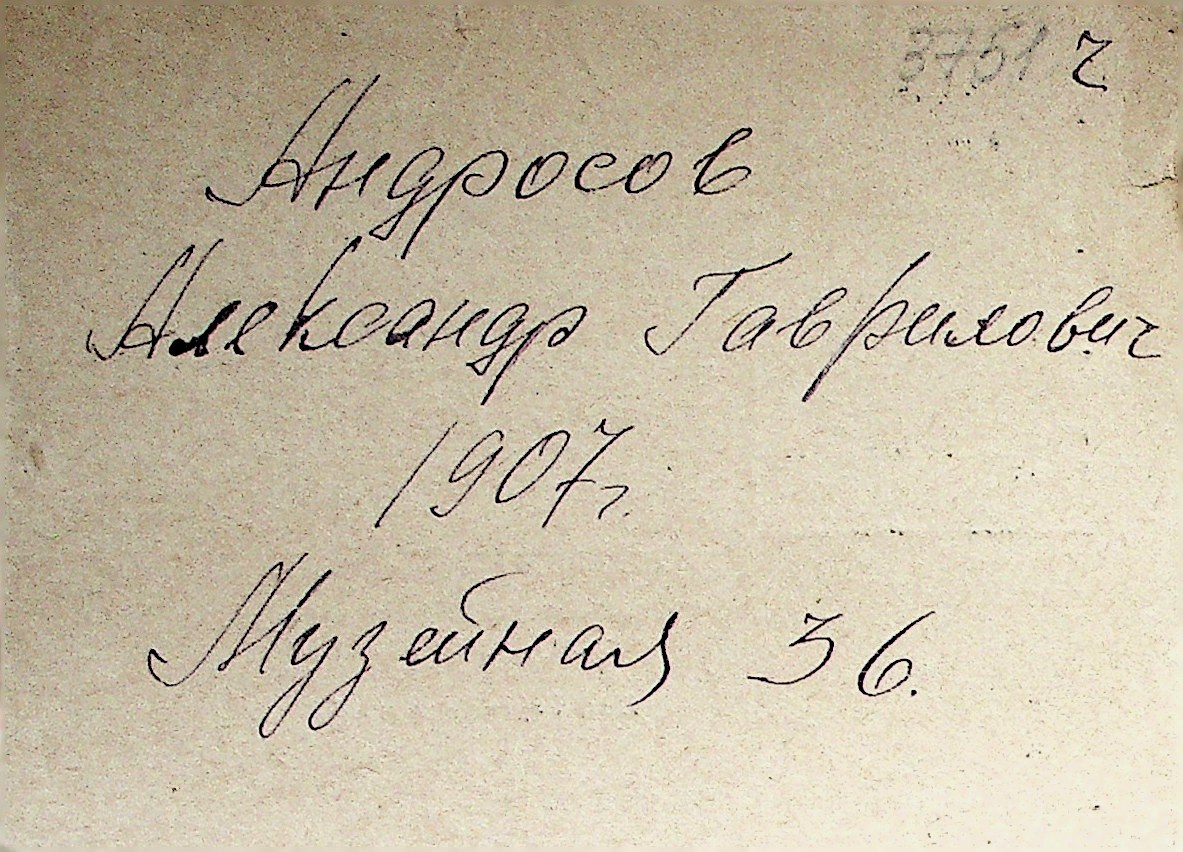 3751 2
Андросов
Александр Гаврилович
1907г.
Музейная 36.